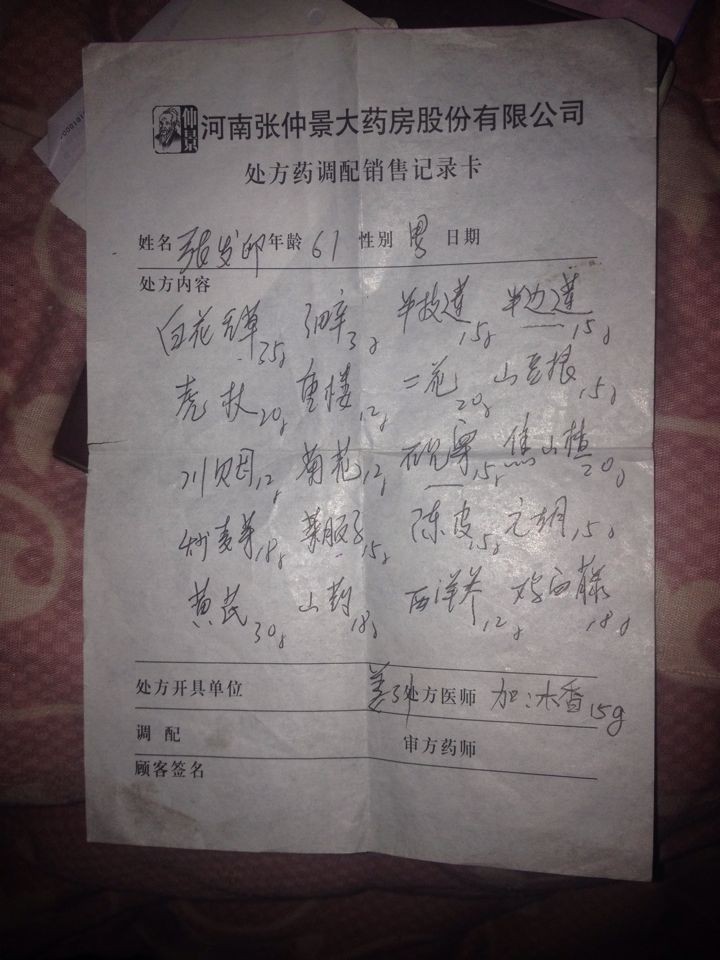 仲景
河南张仲景大药房股份有限公司
处方药调配销售记录卡
姓名 张发印 年龄 61 性别 男 日期
处方内容
白花舌草 35g 细辛 3g 半枝莲 15g 半边莲 15g
虎杖 20g 重楼 12g 二花 20g 山豆根 15g
川贝母 12g 菊花 12g 石见穿 15g 焦山楂 20g
炒麦芽 18g 莱服子 15g 陈皮 15g 元胡 15g
黄芪 30g 山药 18g 西洋参 12g 炒白蔹 18g
处方开具单位 处方医师 加:木香 15g
调 配 审方药师
顾客签名